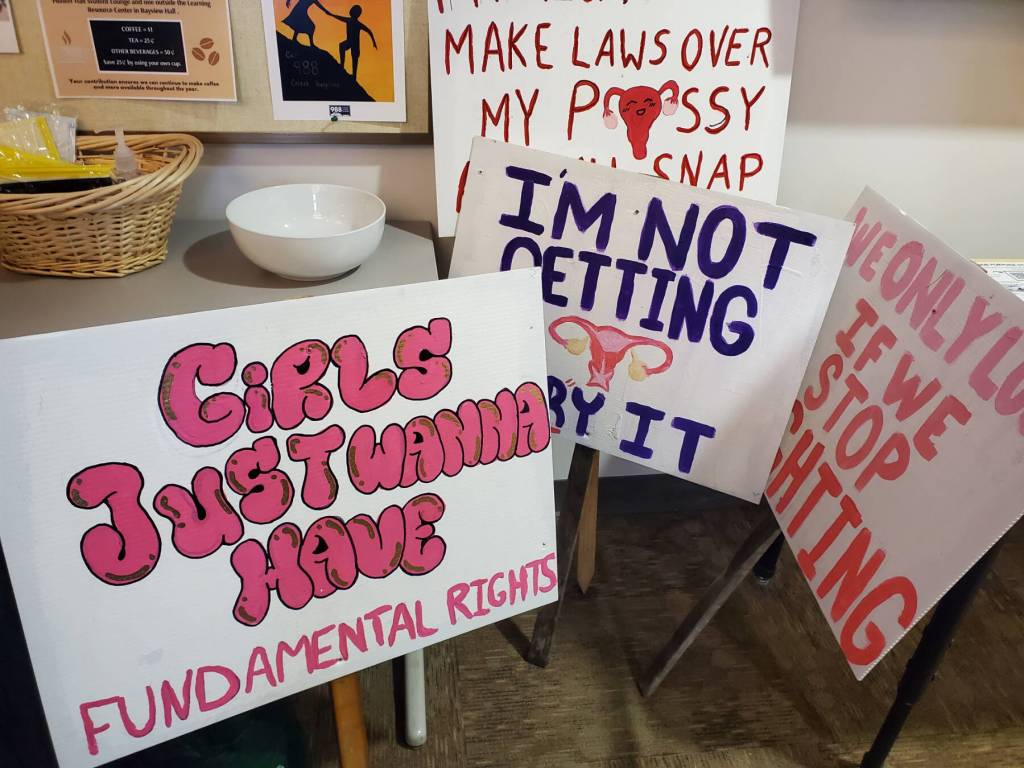 Resource Center in Bayview Hall .
COFFEE = $1
TEA = 25¢
OTHER BEVERAGES = 50¢
Save 25¢ by using your own cup.
Your contribution ensures we can continue to make coffee
and more available throughout the year.
988
MAKE LAWS OVER
MY P SSY
SNAP
I'M NOT
GETTING
BY IT
WE ONLY
IF WE
STOP
HTING
GiRLS
JUST WANNA
HAVE
FUNDAMENTAL RIGHTS